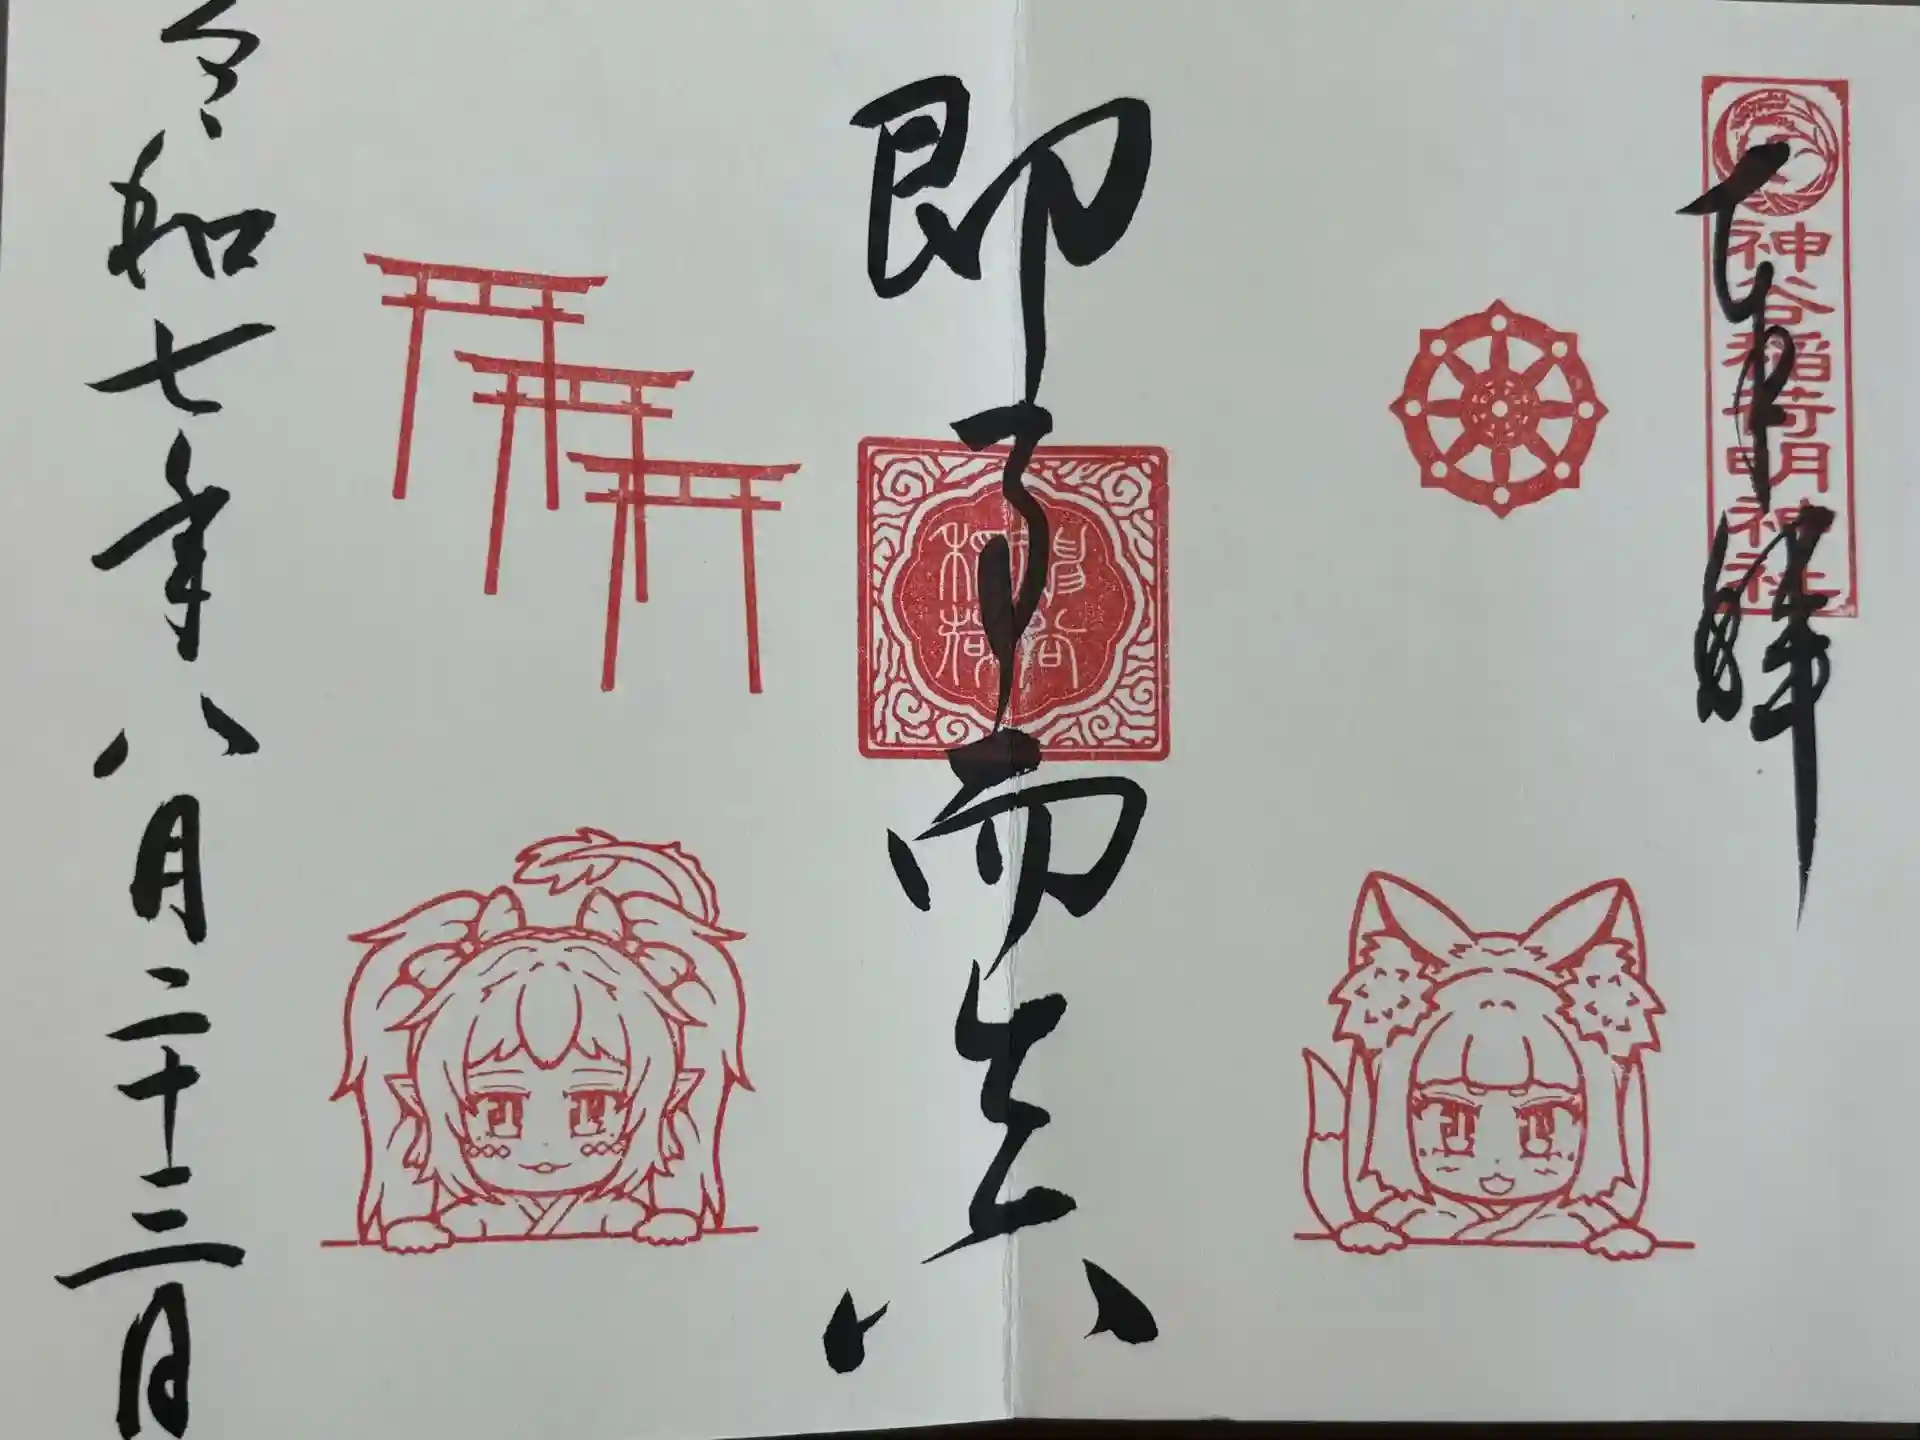 奉拝
神谷稲荷明神社
即事而真
神谷
稲荷
令和七年八月二十三日